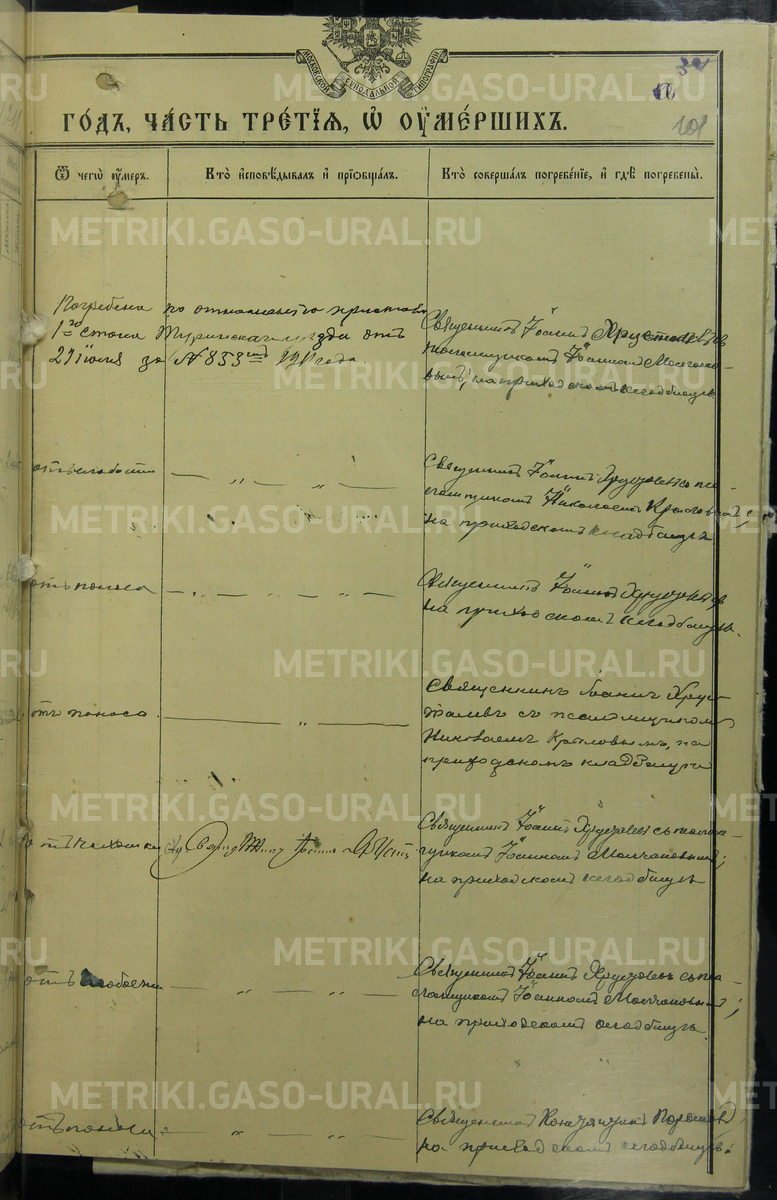 МОСКОВСКОЙ СѴНОДАЛЬНОЙ ТИПОГРАФІИ
101
ГО́ДЪ, ЧА́СТЬ ТРЕ́ТІѦ, Ѡ҆ ОУ҆МЕ́РШИХЪ.
Ѿ чегѡ̀ оу҆́меръ.
Кто̀ и҆сповѣ́дывалъ и҆ прїѡбща́лъ.
Кто̀ соверша́лъ погребе́нїе, и҆ гдѣ̀ погребены̀.
Погребена по отношенію пристава
1го стана Туринскаго уѣзда отъ
21 іюня за № 853 1911 года.
Священникъ Іоаннъ Хрусталевъ съ
псаломщикомъ Іоанномъ Молчано-
вымъ; на приходскомъ кладбищѣ
отъ слабости
Священникъ Іоаннъ Хрусталевъ съ пса-
ломщикомъ Николаемъ Крыловымъ;
на приходскомъ кладбищѣ
отъ поноса
Священникъ Іоаннъ Хрусталевъ
на приходскомъ кладбищѣ.
отъ поноса.
Священникъ Іоаннъ Хрус-
талевъ съ псаломщикомъ
Николаемъ Крыловымъ, на
приходскомъ кладбищѣ
отъ чахотки
Священникъ Іоаннъ Хрусталевъ съ псалом-
щикомъ Іоанномъ Молчановымъ;
на приходскомъ кладбищѣ
отъ слабости
Священникъ Іоаннъ Хрусталевъ съ пса-
ломщикомъ Іоанномъ Молчановымъ;
на приходскомъ кладбищѣ.
отъ поноса
Священникъ
на приходскомъ кладбищѣ.
METRIKI.GASO-URAL.RU